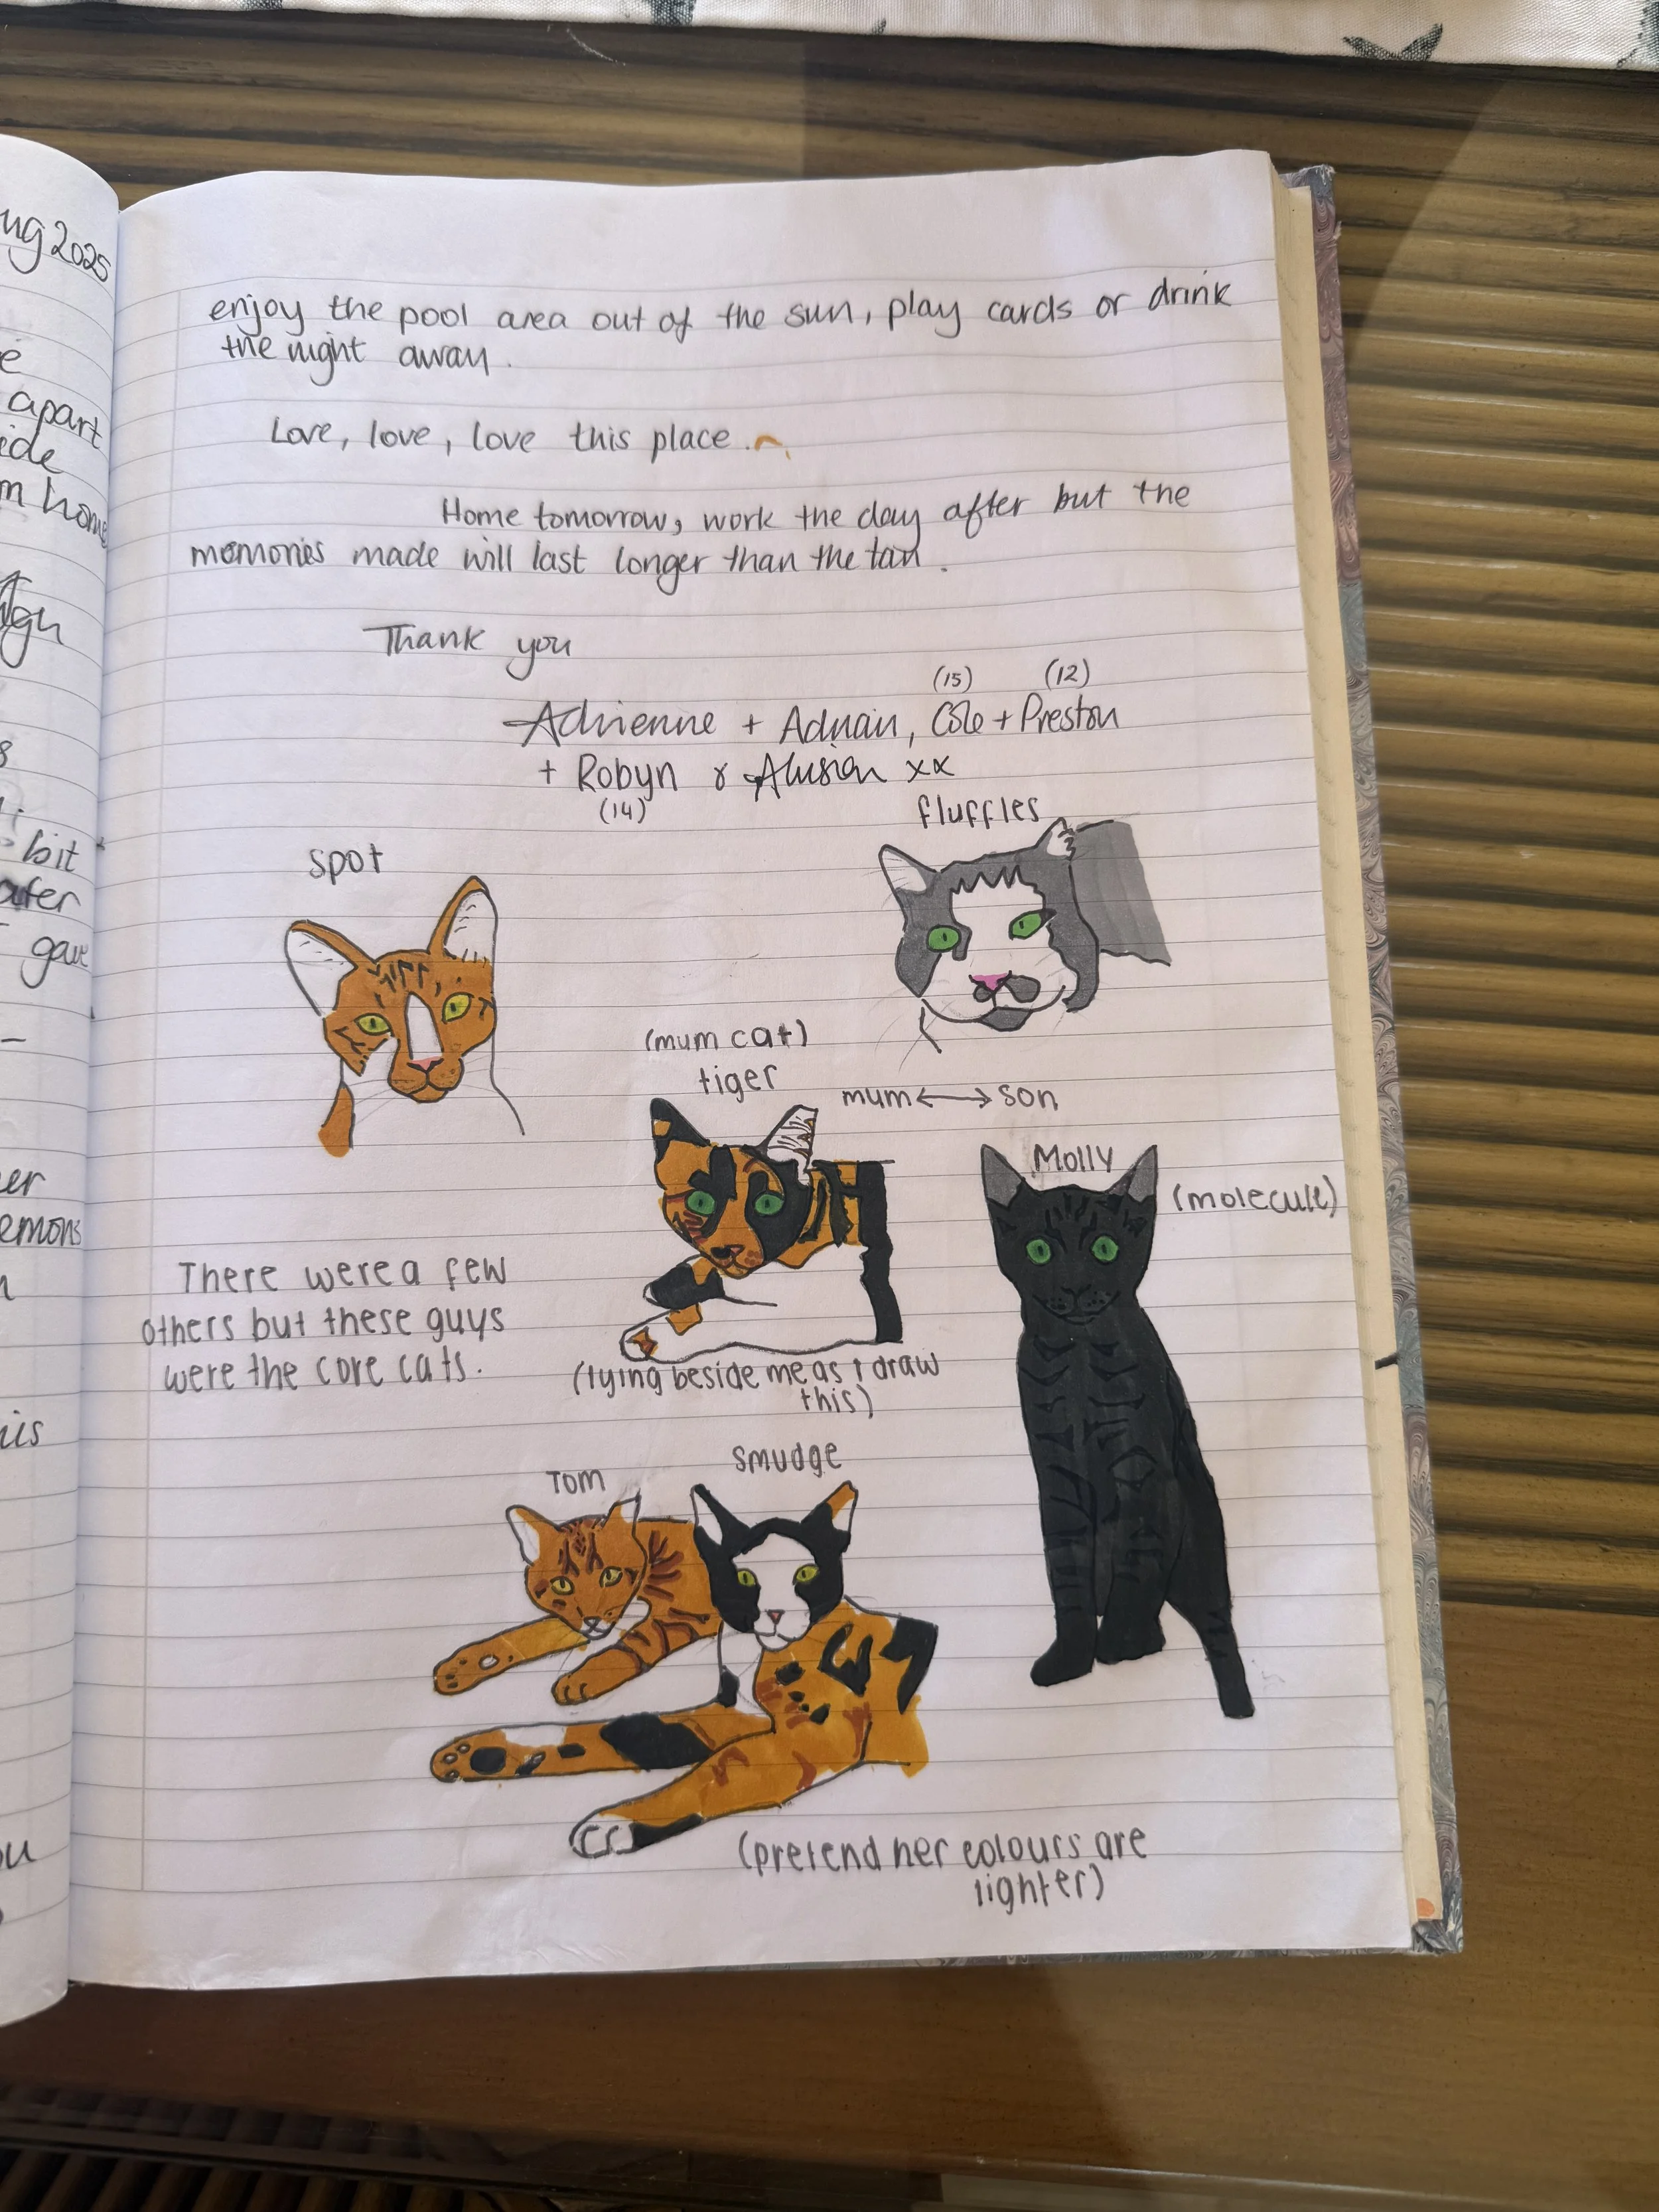 ug 2025
e
apart
ide
m home
bit
gave
er
emons
enjoy the pool area out of the sun, play cards or drink
the night away.
Love, love, love this place.
Home tomorrow, work the day after but the
memories made will last longer than the tan.
Thank you
(15) (12)
Adrienne + Adnan, Cole + Preston
+ Robyn & xx
(14)
fluffles
spot
(mum cat)
tiger
mum ↔ son
Molly
(molecule)
There were a few
others but these guys
were the core cats.
(lying beside me as I draw
this)
Tom
smudge
(pretend her colours are
lighter)